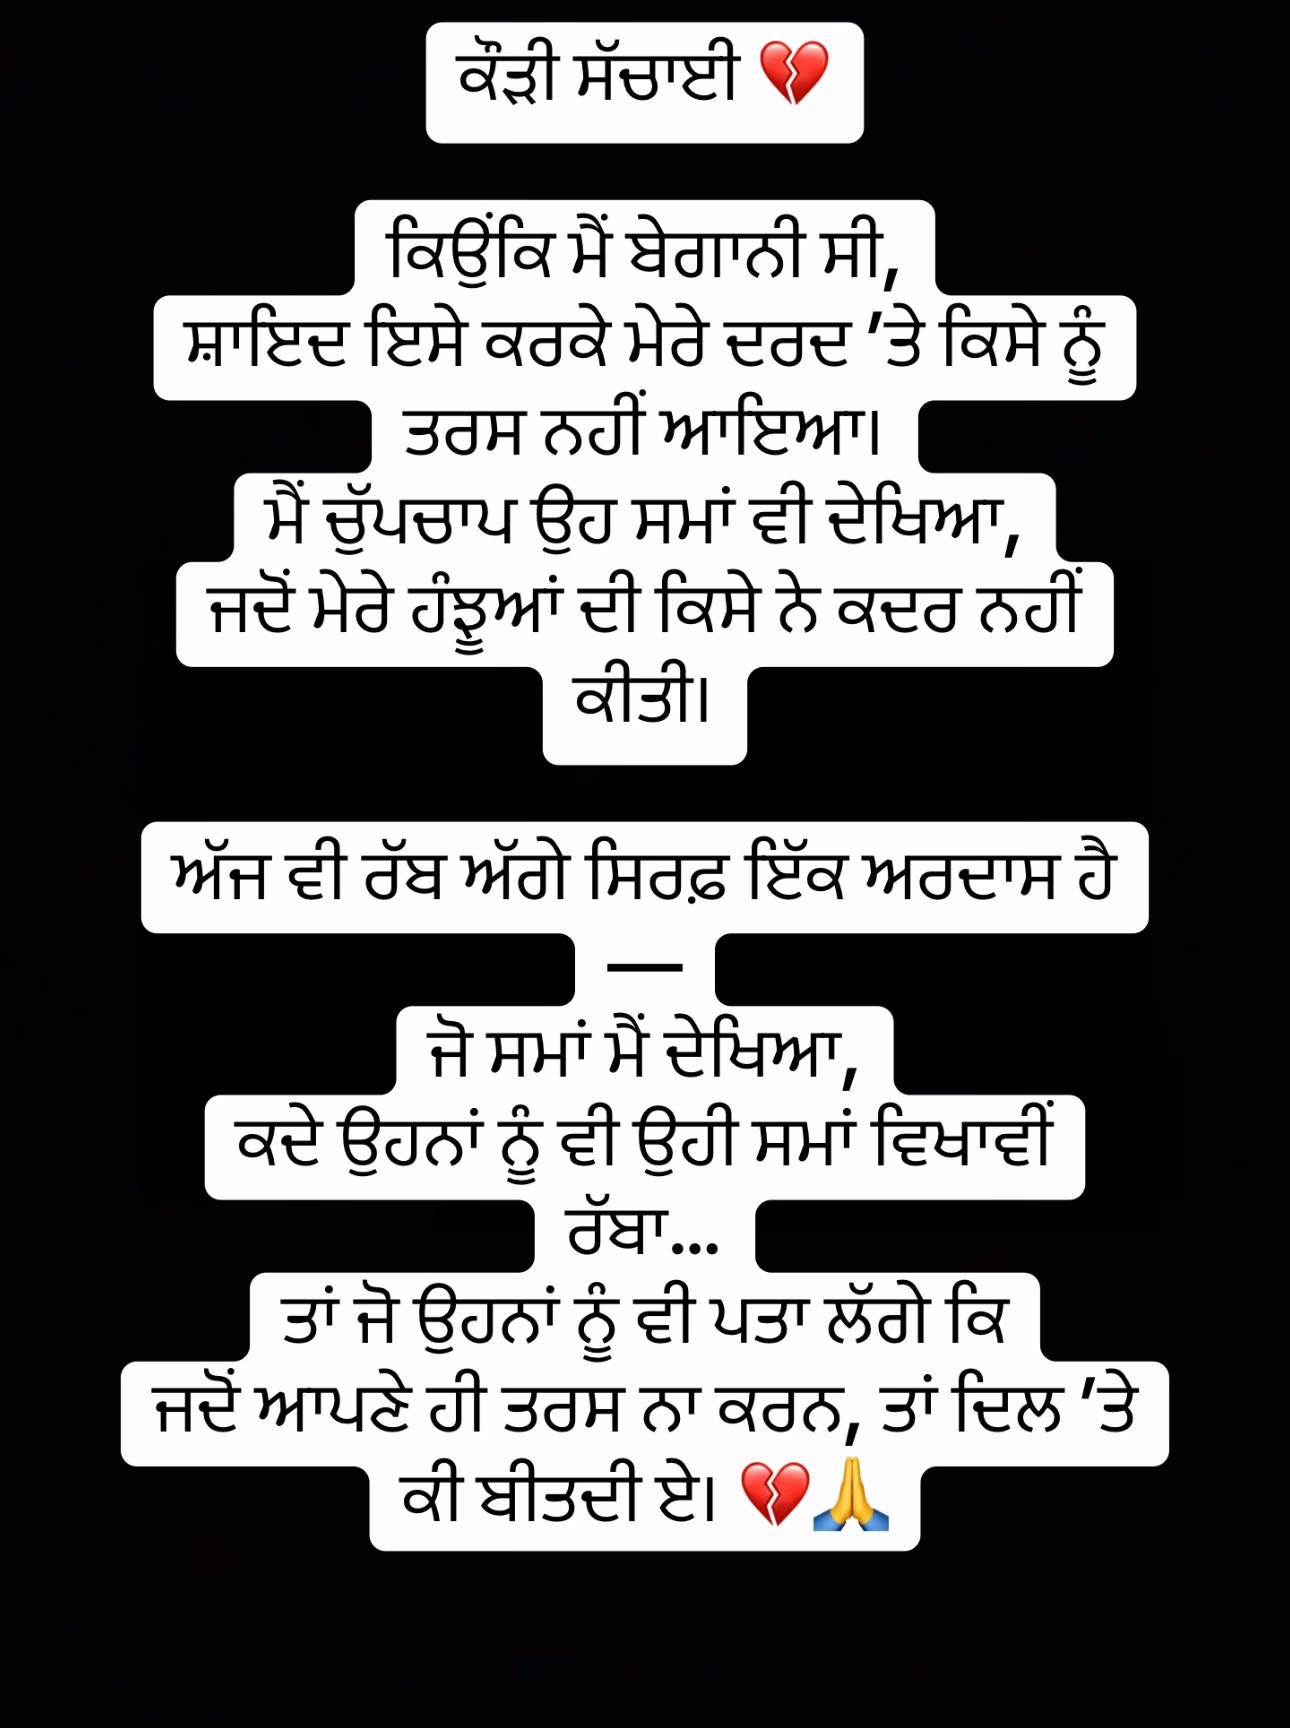 ਕੌੜੀ ਸੱਚਾਈ 💔
ਕਿਉਂਕਿ ਮੈਂ ਬੇਗਾਨੀ ਸੀ,
ਸ਼ਾਇਦ ਇਸੇ ਕਰਕੇ ਮੇਰੇ ਦਰਦ ’ਤੇ ਕਿਸੇ ਨੂੰ
ਤਰਸ ਨਹੀਂ ਆਇਆ।
ਮੈਂ ਚੁੱਪਚਾਪ ਉਹ ਸਮਾਂ ਵੀ ਦੇਖਿਆ,
ਜਦੋਂ ਮੇਰੇ ਹੰਝੂਆਂ ਦੀ ਕਿਸੇ ਨੇ ਕਦਰ ਨਹੀਂ
ਕੀਤੀ।
ਅੱਜ ਵੀ ਰੱਬ ਅੱਗੇ ਸਿਰਫ਼ ਇੱਕ ਅਰਦਾਸ ਹੈ
—
ਜੋ ਸਮਾਂ ਮੈਂ ਦੇਖਿਆ,
ਕਦੇ ਉਹਨਾਂ ਨੂੰ ਵੀ ਉਹੀ ਸਮਾਂ ਵਿਖਾਵੀਂ
ਰੱਬਾ...
ਤਾਂ ਜੋ ਉਹਨਾਂ ਨੂੰ ਵੀ ਪਤਾ ਲੱਗੇ ਕਿ
ਜਦੋਂ ਆਪਣੇ ਹੀ ਤਰਸ ਨਾ ਕਰਨ, ਤਾਂ ਦਿਲ ’ਤੇ
ਕੀ ਬੀਤਦੀ ਏ। 💔🙏